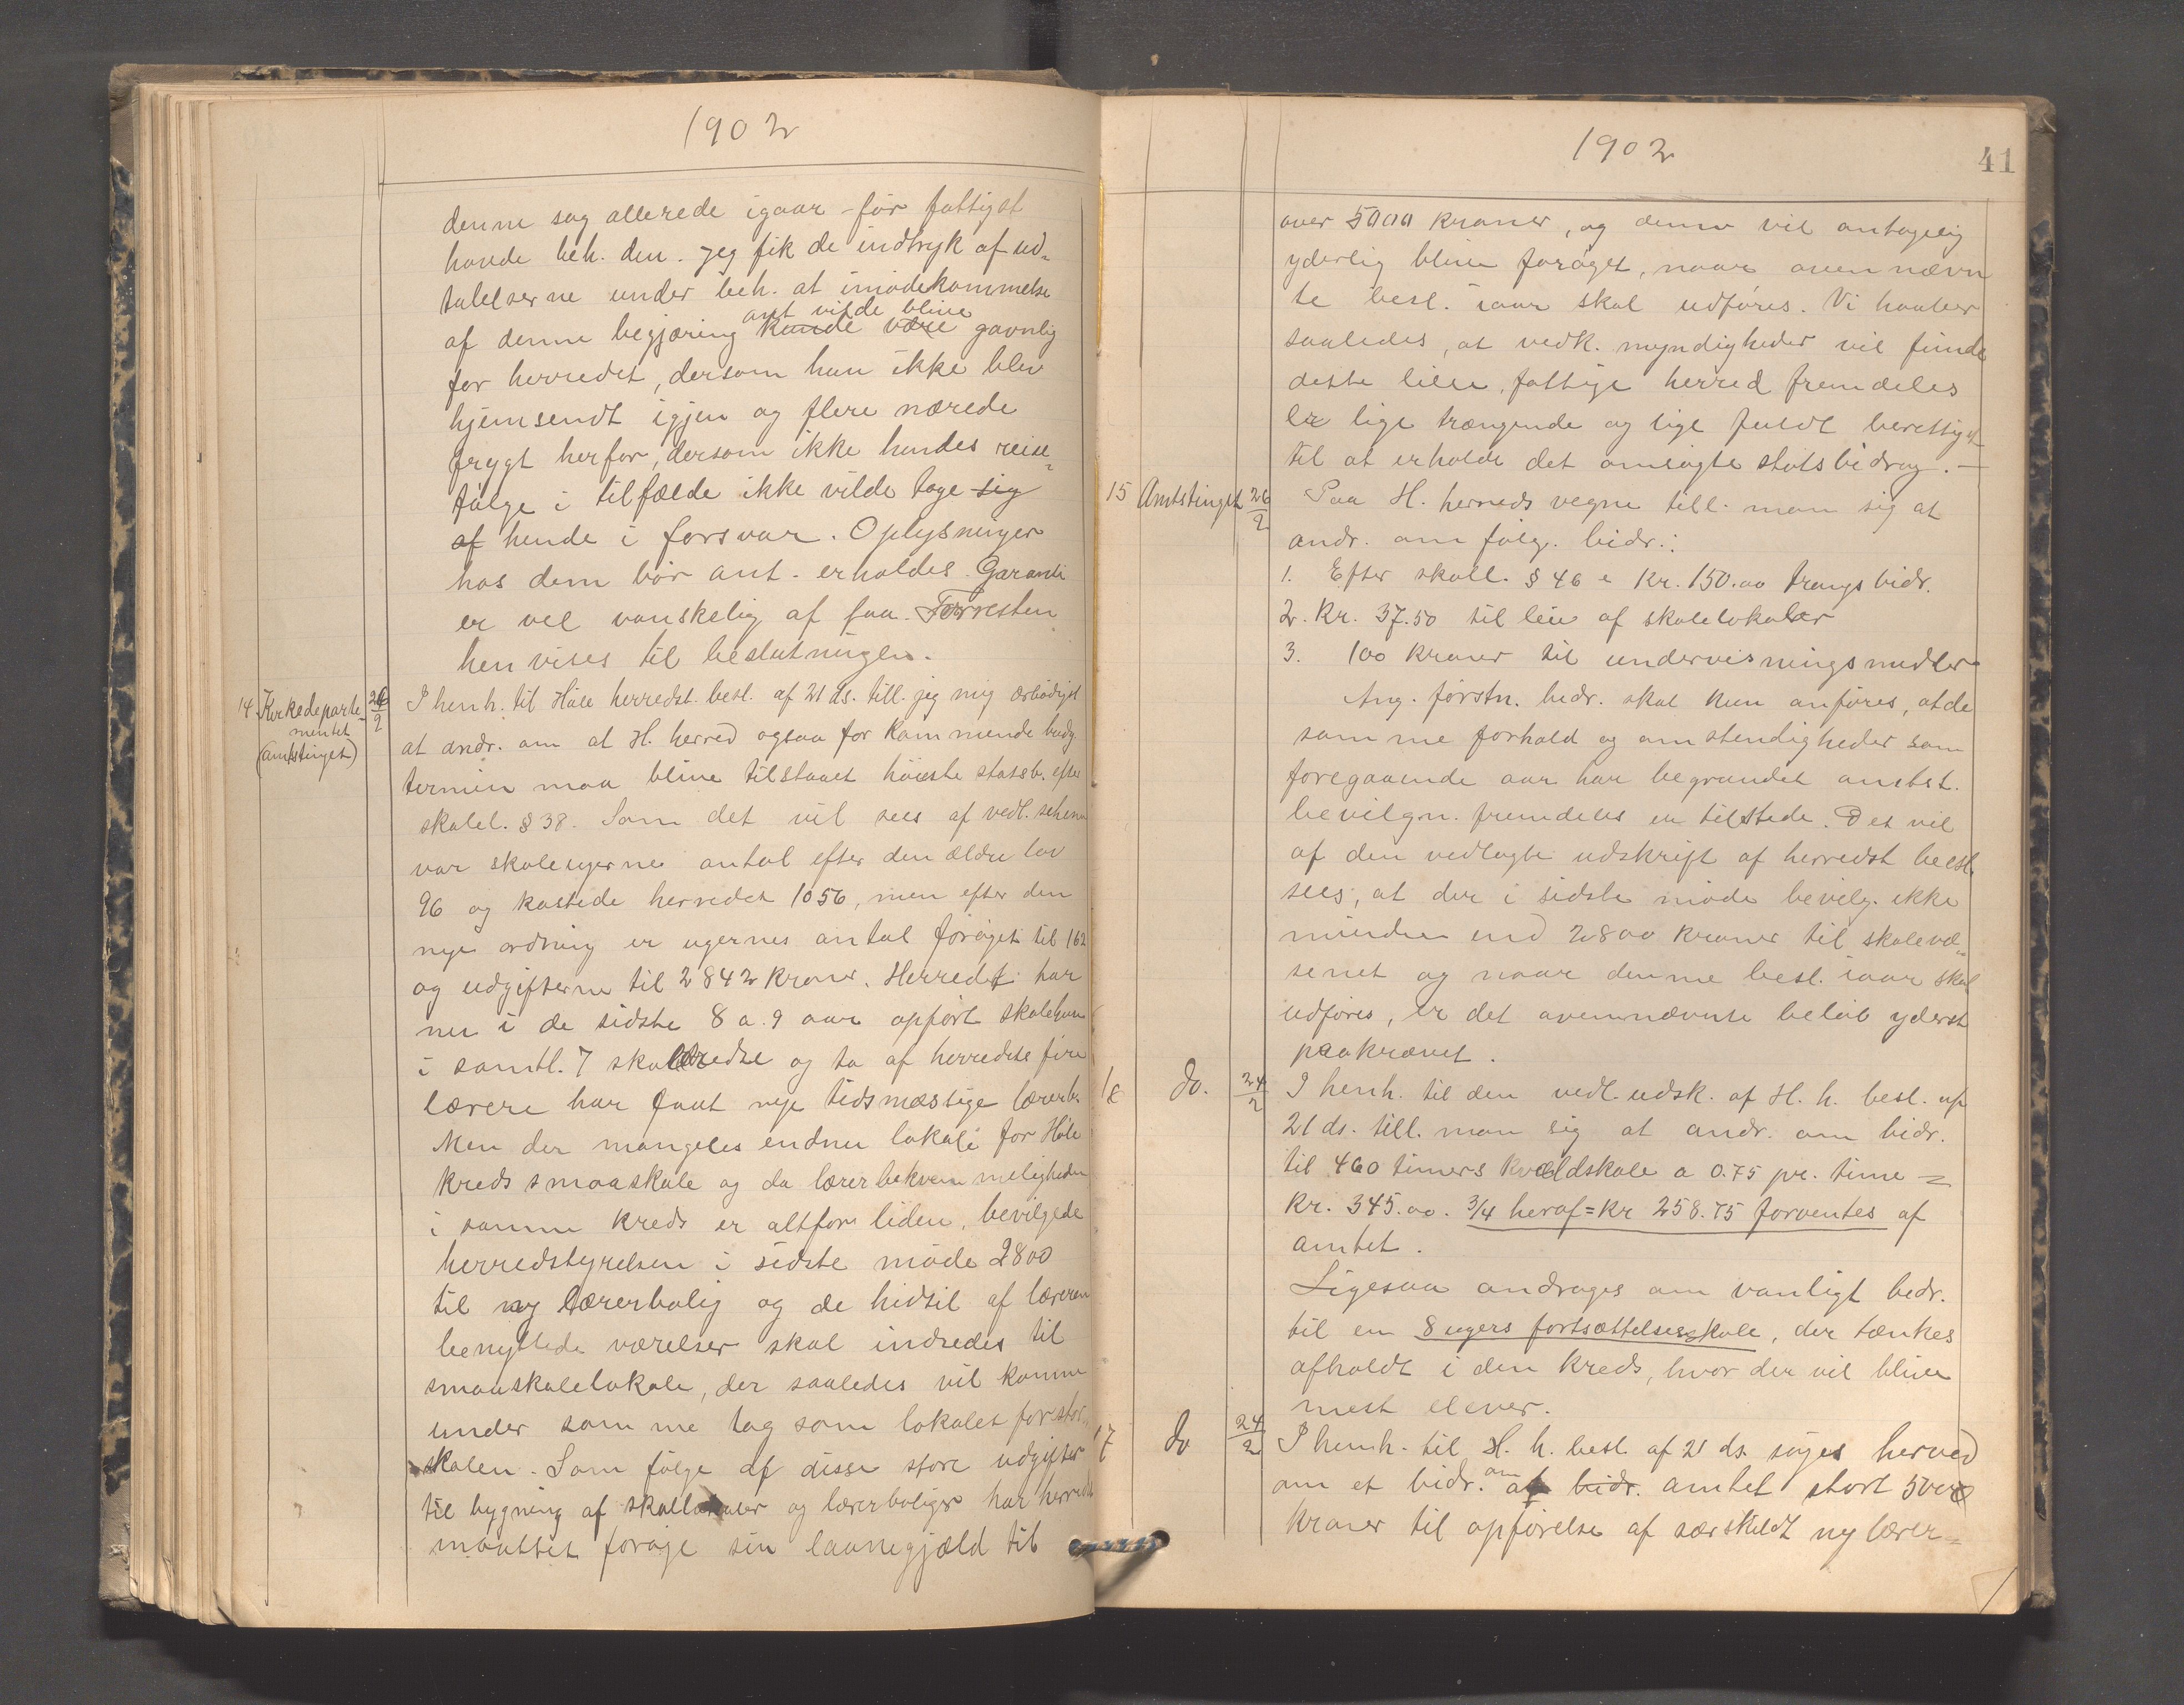 1902
denne sag allerede igaar - før fattigst
havde beh. den. Jeg fik de indtryk af ud-
talelserne under beh. at imødekommelse
ant vilde blive
af denne begjæring kunde være gavnlig
for herredet, dersom hun ikke blev
hjemsendt igjen og flere nærede
frygt herfor, dersom ikke hendes reise-
følge i tilfælde ikke vilde tage sig
af hende i forsvar. Oplysninger
hos dem bør ant. erholdes. Garanti
er vel vanskelig af faa. Forresten
henvises til beslutningen.
14. Kirkedeparte-
mentet
(amtstinget)
26/2
I henh. til Håle herredst. besl. af 21 ds. till. jeg mig ærbødigst
at andr. om at H. herred ogsaa for kommende budg.
termin maa blive tilstaaet høieste statsb. efter
skolel. § 38. Som det vil sees af vedl. schema
var skoleugernes antal efter den ældre lov
96 og kostede herredet 1056, men efter den
nye ordning er ugernes antal forøget til 162
og udgifterne til 2842 kroner. Herredet har
nu i de sidste 8 a. 9 aar opført skolehuse
i samtl. 7 skolekredse og to af herredets fire
lærere har faaet nye tidsmæssige lærerb.
Men der mangeles endnu lokale for Håle
kreds smaaskole og da lærerbekvemmeligheden
i samme kreds er altfor liden, bevilgede
herredstyrelsen i sidste møde 2800
til ny lærerbolig og de hidtil af læreren
benyttede værelser skal indredes til
smaaskolelokale, der saaledes vil komme
under samme tag som lokalet for stor-
skolen. Som følge af disse store udgifter
til bygning af skolelokaler og lærerboliger har herredet
maattet forøge sin laanegjæld til
1902
41
over 5000 kroner, og denne vil antagelig
yderlig blive forøget, naar ovennævn
te besl. iaar skal udføres. Vi haaber
saaledes, at vedk. myndigheder vil finde
dette lille, fattige herred fremdeles
er lige trængende og lige fuldt berettiget
til at erholde det omsøgte statsbidrag. —
15 Amtstinget 26/2
Paa H. herreds vegne till. man sig at
andr. om følg. bidr.:
1. Efter skoll. § 46 e Kr. 150.00 trangsbidr.
2. Kr. 37.50 til leie af skolelokaler
3. 100 kroner til undervisningsmidler
Ang. førstn. bidr. skal kun anføres, at de
samme forhold og omstendigheder som
foregaaende aar har begrundet amtst.
bevilgn. fremdeles er tilstede. Det vil
af den vedlagte udskrift af herredst besl.
sees, at der i sidste møde bevilg. ikke
mindre end 2800 kroner til skolevæ-
senet og naar denne besl. iaar skal
udføres, er det ovennævnte beløb yderst
paakrævet.
16 do. 24/2
I henh. til den vedl. udsk. af H. h. besl. af
21 ds. till. man sig at andr. om bidr.
til 460 timers kveldskole a 0.75 pr. time =
Kr. 345.00. 3/4 heraf = Kr 258.75 forventes af
amtet.
Ligesaa andrages om vanligt bidr.
til en 8 ugers fortsættelsesskole, der tænkes
afholdt i den kreds, hvor der vil blive
mest elever.
17 do 24/2
I henh. til H. h. besl. af 21 ds. søges herved
om et bidr. af bidr. amtet stort 500
kroner til opførelse af særskildt ny lærer-